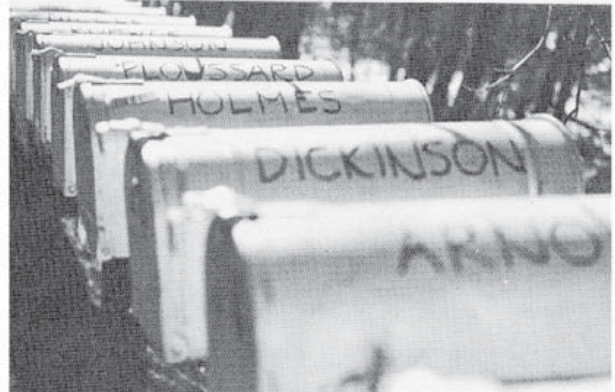 JOHNSON
PLOUSSARD
HOLMES
DICKINSON
ARNO